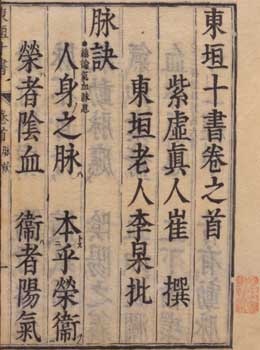 東垣十書卷之首
紫虛眞人崔 撰
東垣老人李杲批
脉訣
人身之脉 本乎榮衞
榮者陰血 衞者陽氣
東垣十書 卷首